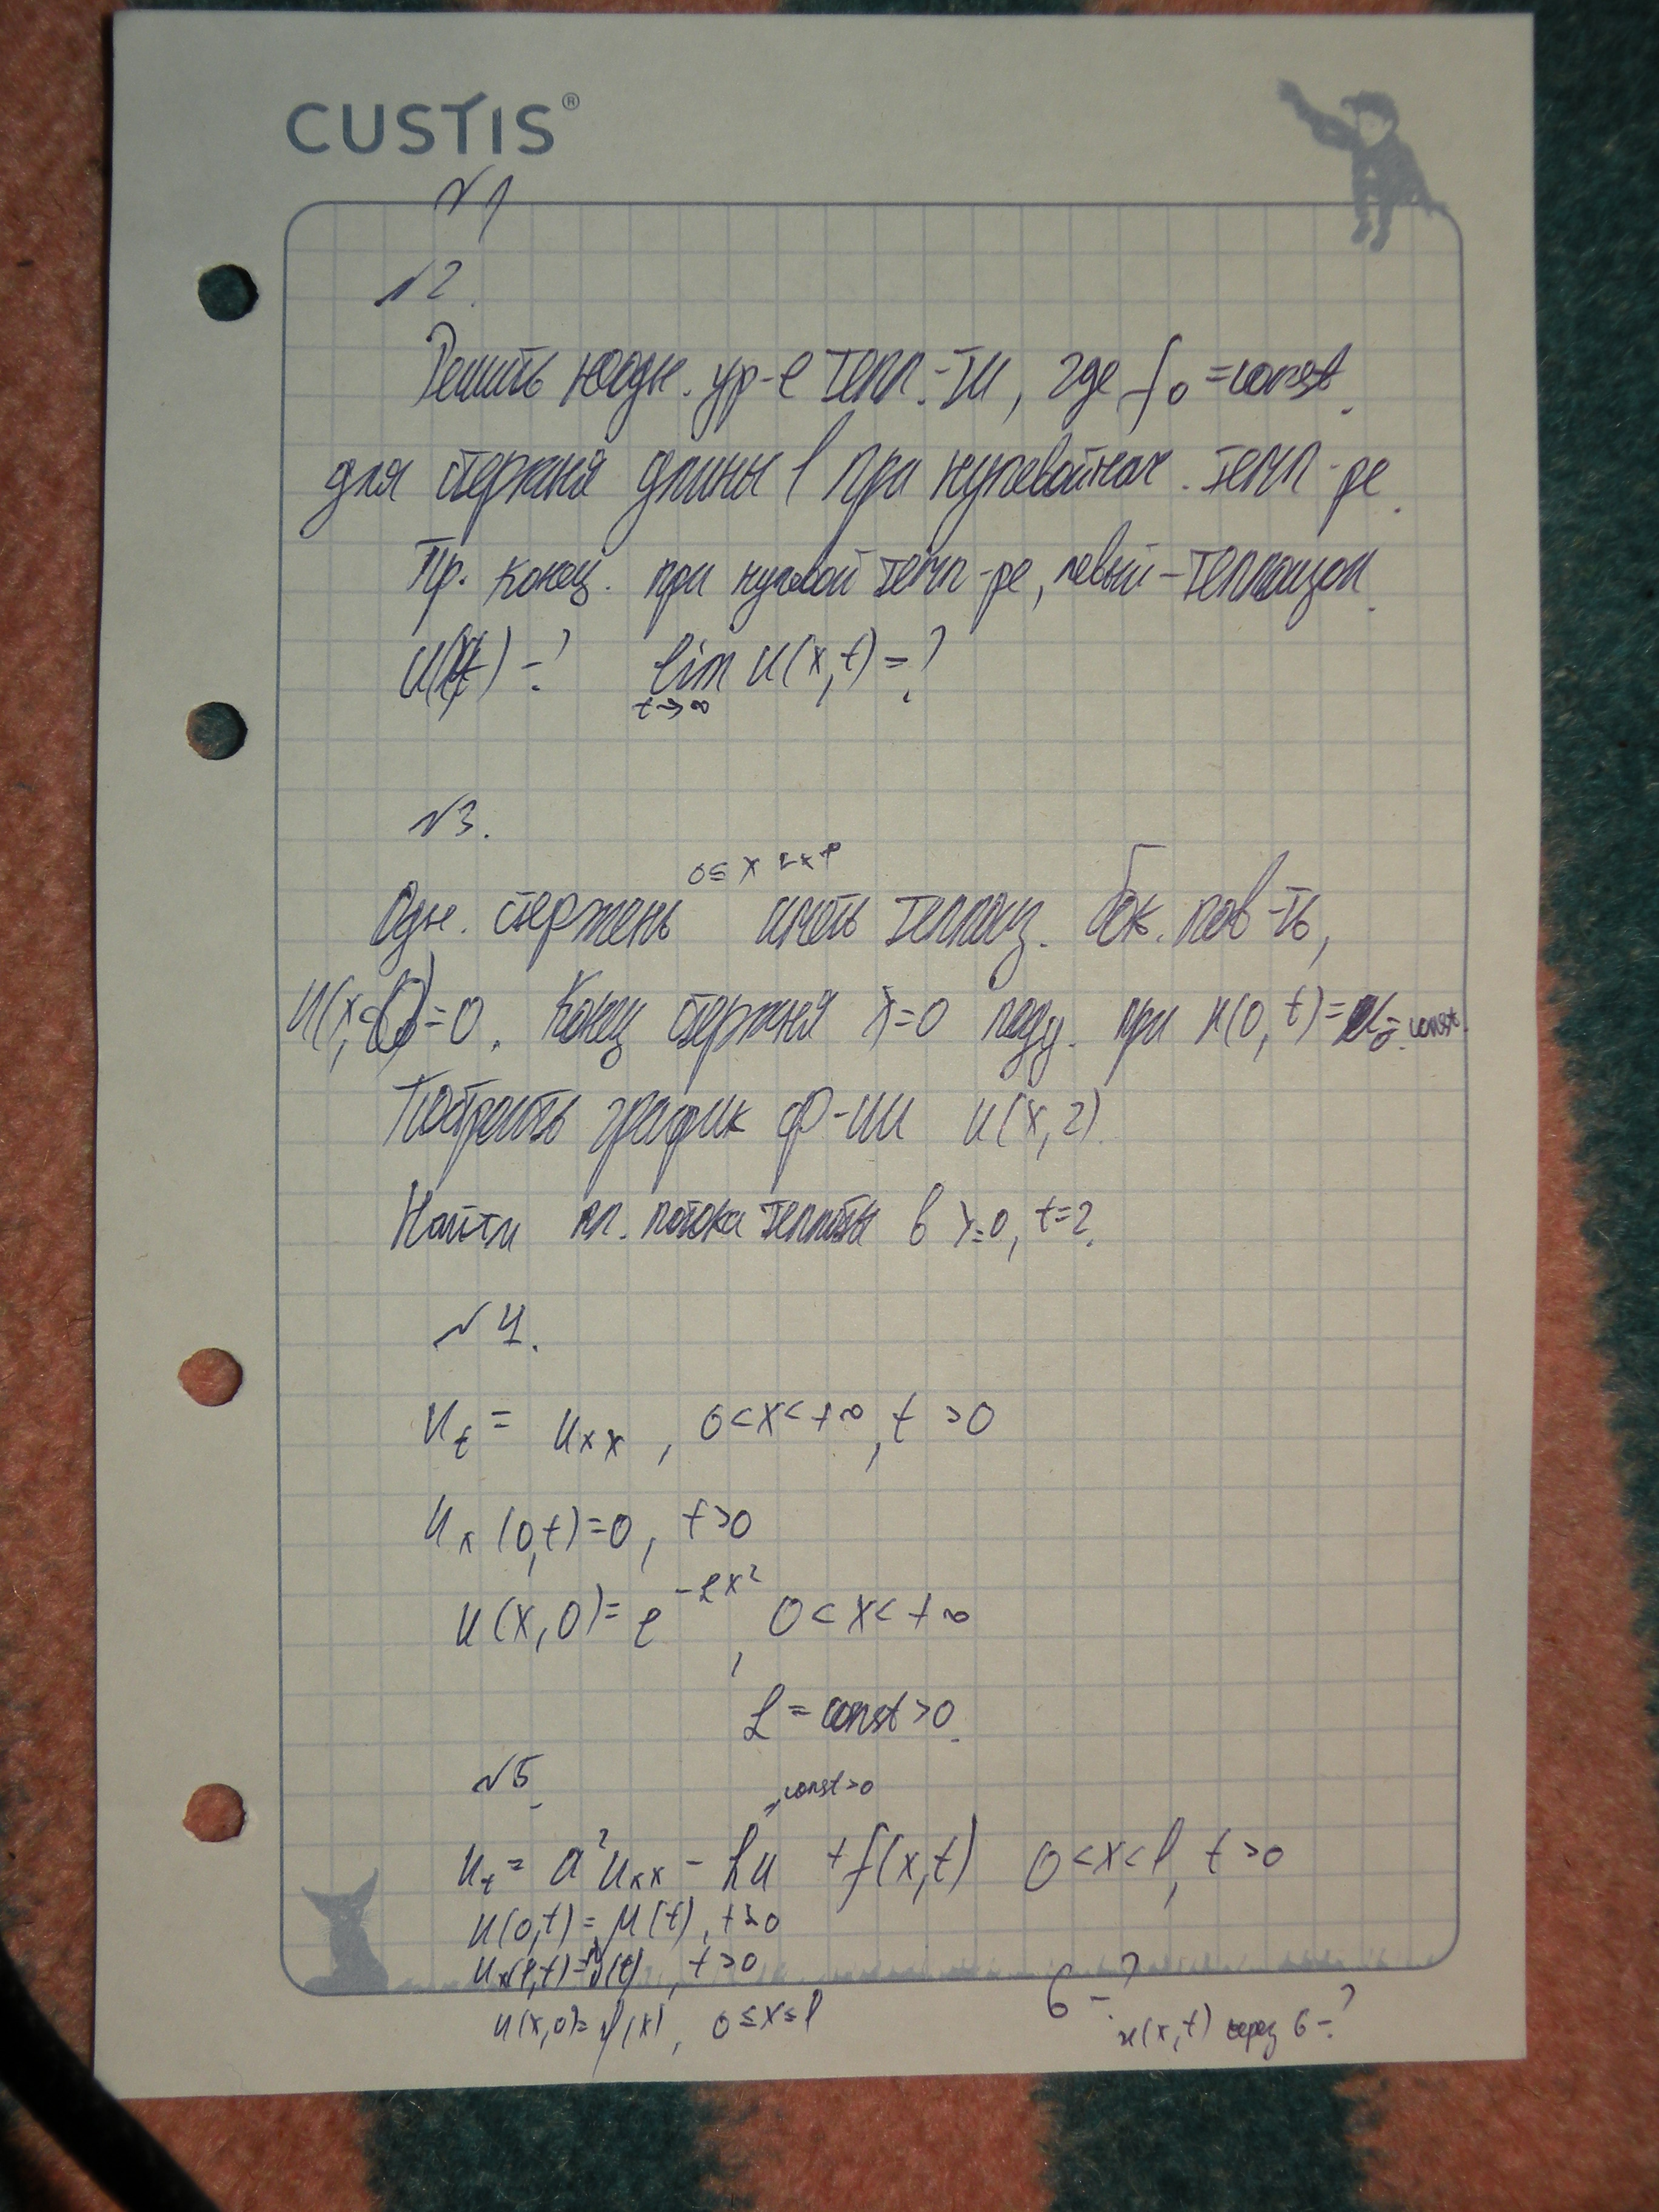 CUSTIS®
№1
№2.
Решить неодн. ур-е тепл-ти, где f₀ = const.
для стержня длины l при нулевой нач. темп-ре.
Пр. конец. при нулевой темп-ре, левый - теплоизол.
u(x,t) - ? lim u(x,t) = ?
t→∞
№3.
0 ≤ x < +∞
Одн. стержень имеет теплоиз. бок. пов-ть,
u(x,0) = 0. Конец стержня x=0 подд. при u(0,t) = u₀ = const.
Построить график ф-ии u(x,2).
Найти пл. потока теплоты в x=0, t=2.
№4.
uₜ = uₓₓ, 0<x<+∞, t>0
uₓ(0,t)=0, t>0
u(x,0)= e^(-αx²), 0<x<+∞
α = const>0.
№5.
= const>0
uₜ = a²uₓₓ - hu + f(x,t) 0<x<l, t>0
u(0,t) = μ(t), t>0
uₓ(l,t) = ν(t), t>0
u(x,0) = φ(x), 0≤x≤l
G - ?
u(x,t) через G - ?